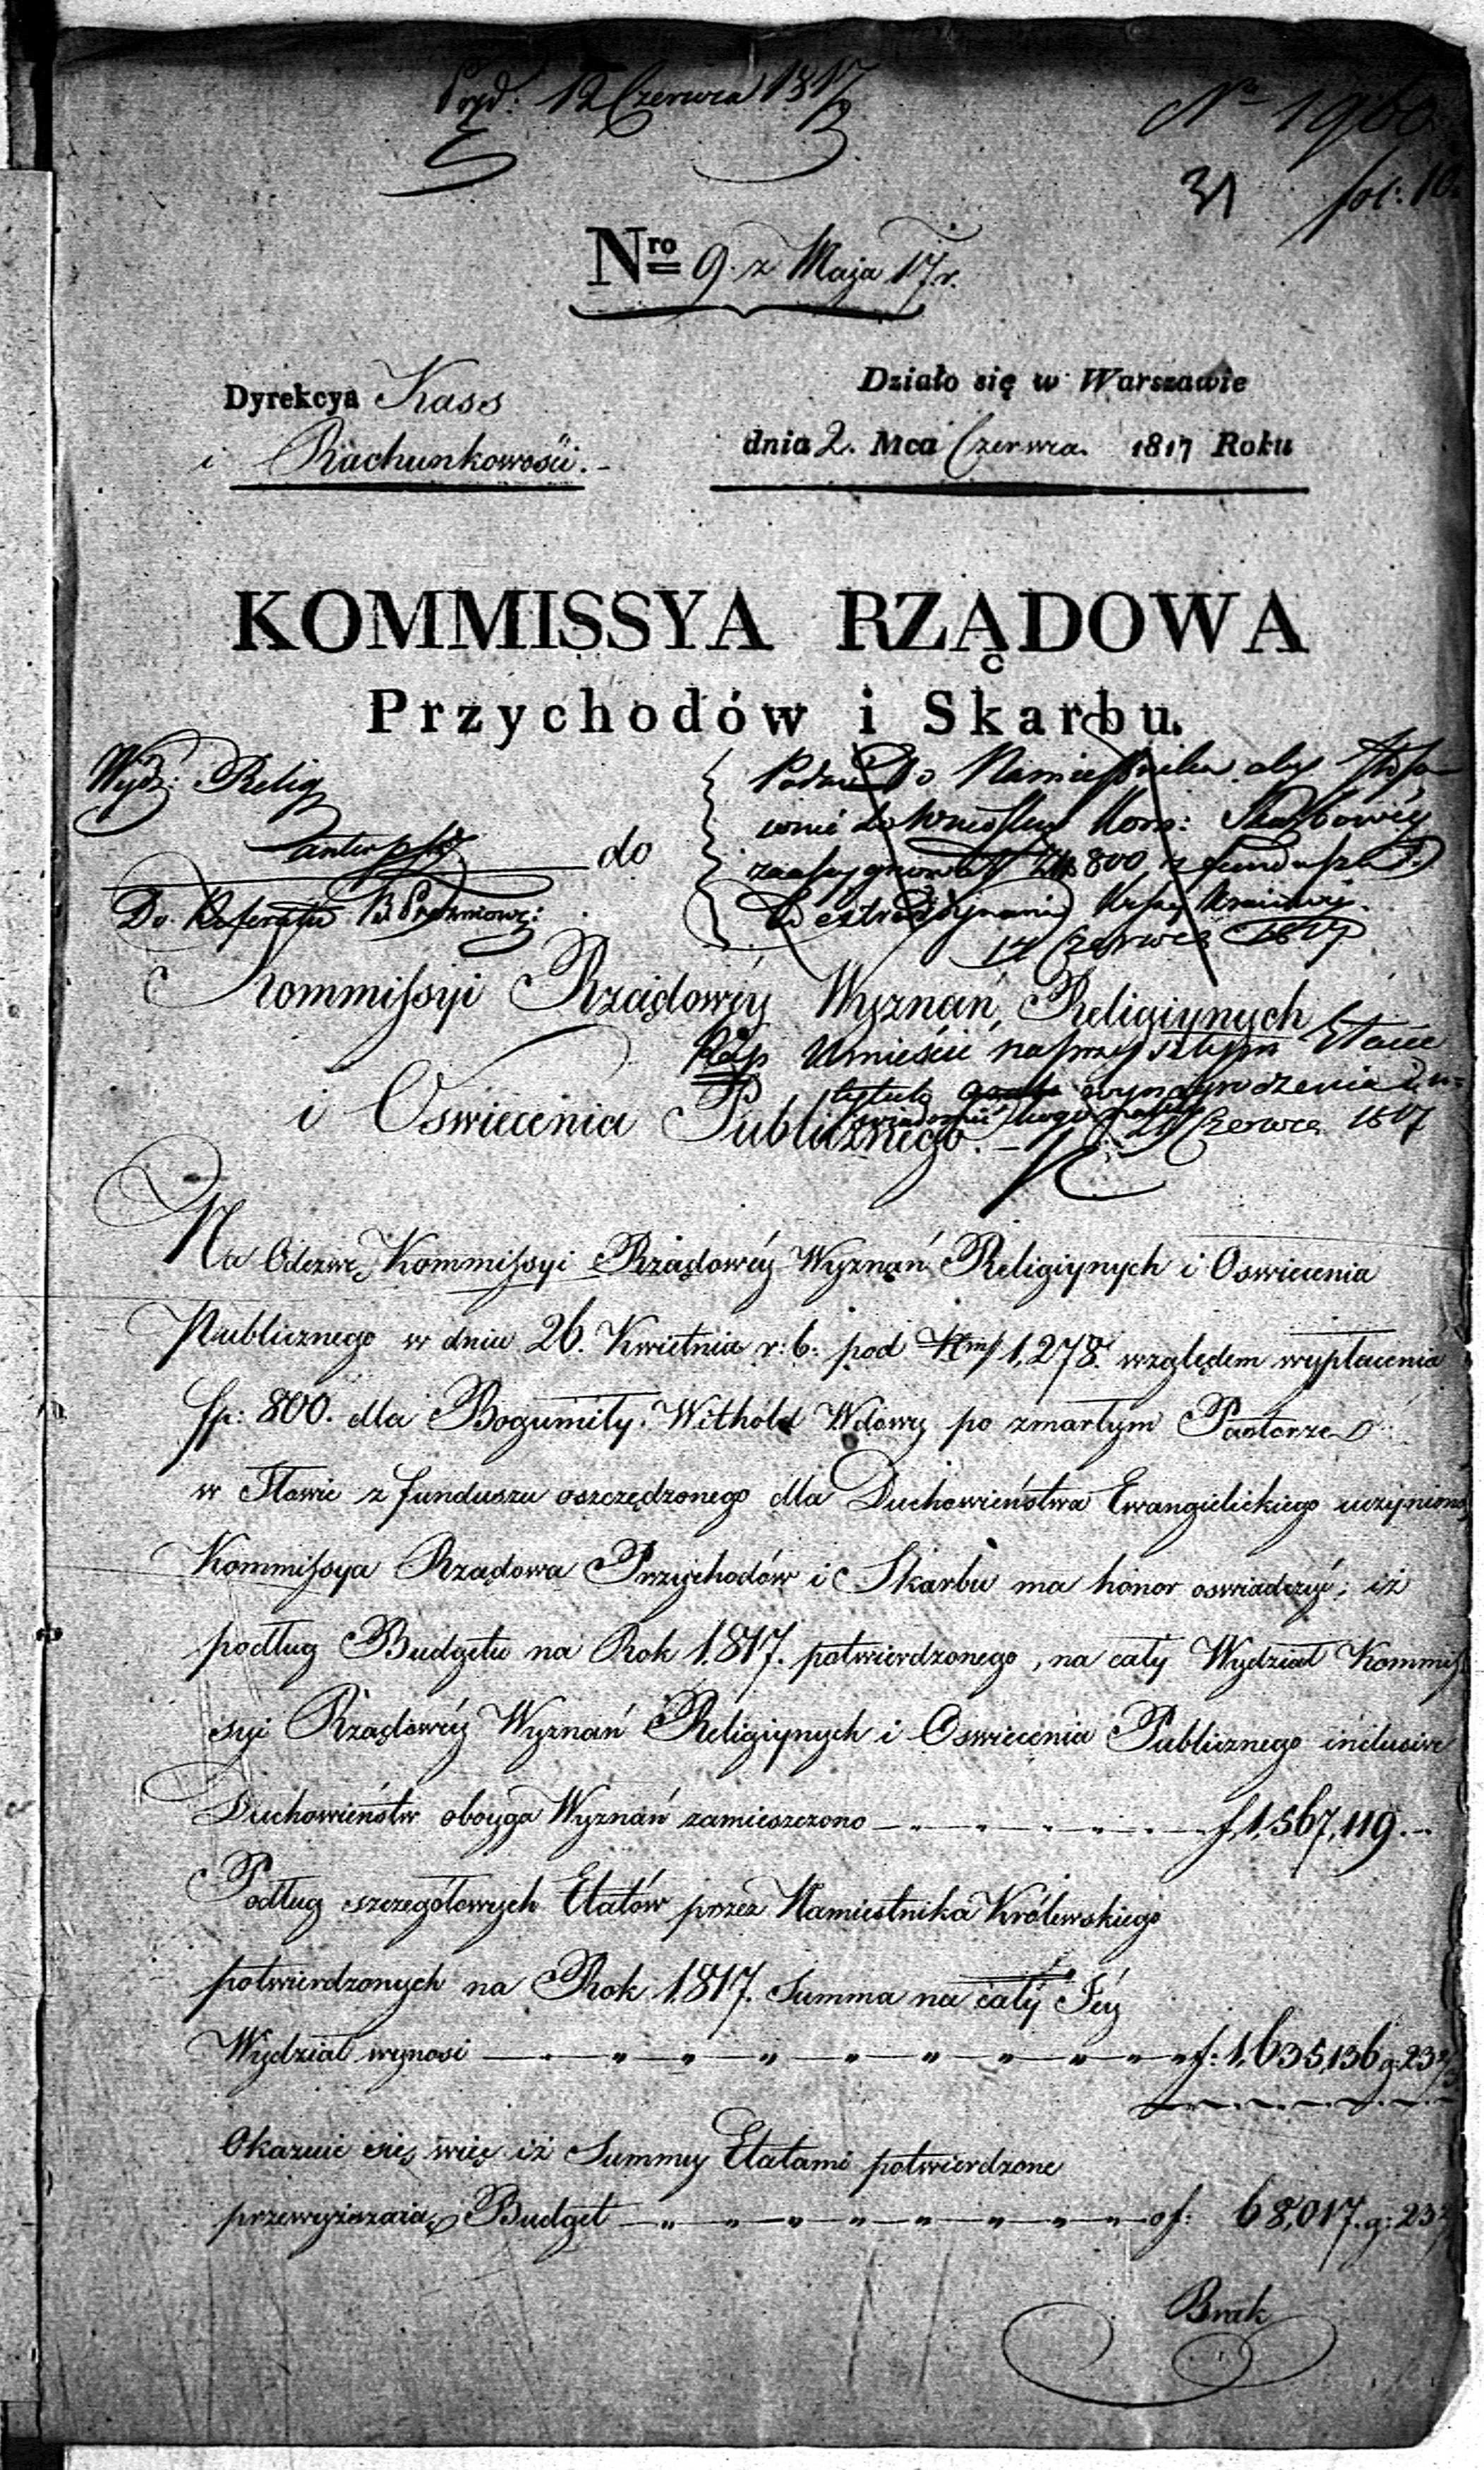 12 Czerwca 1817
Nº 1960
31 fol: 10.
Nro 9. z Maja 17. r.
Dyrekcya Kass
i Rachunkowości.
Działo się w Warszawie
dnia 2. Mca Czerwca. 1817 Roku
KOMMISSYA RZĄDOWA
Przychodów i Skarbu.
Wydz: Relig
do
Do Namiestnika aby
Kom: Skarbowéy
800 z funduszu
14 Czerwca 1817
Kommissyi Rządowéy Wyznań Religiynych
Umieścić na przyszłym Etacie
tytułu wynagrodzenia
i Oswiecenia Publicznego.
Czerwca 1817
Na Odezwę Kommissyi Rządowéy Wyznań Religiynych i Oswiecenia
Publicznego w dniu 26. Kwietnia r: b: pod 1,278. względem wypłacenia
fp: 800. dla Bogumiły Withold Wdowy po zmarłym Pastorze
w Iłowie z funduszu oszczędzonego dla Duchowieństwa Ewangielickiego uczynioną
Kommissya Rządowa Przychodów i Skarbu ma honor oswiadczyć; iż
podług Budgetu na Rok 1,817. potwierdzonego, na cały Wydział Kommis
syi Rządowéy Wyznań Religiynych i Oswiecenia Publicznego inclusive
Duchowieństw oboyga Wyznań zamieszczono f. 1,567,119.
Podług szczegółowych Etatów przez Namiestnika Królewskiego
potwierdzonych na Rok 1,817. Summa na cały Téy
Wydział wynosi f: 1,635,136 g: 23 2/3
Okazuie się więc iż Summy Etatami potwierdzone
przewyższaią Budget of: 68,017. g: 23 2/3
Brak